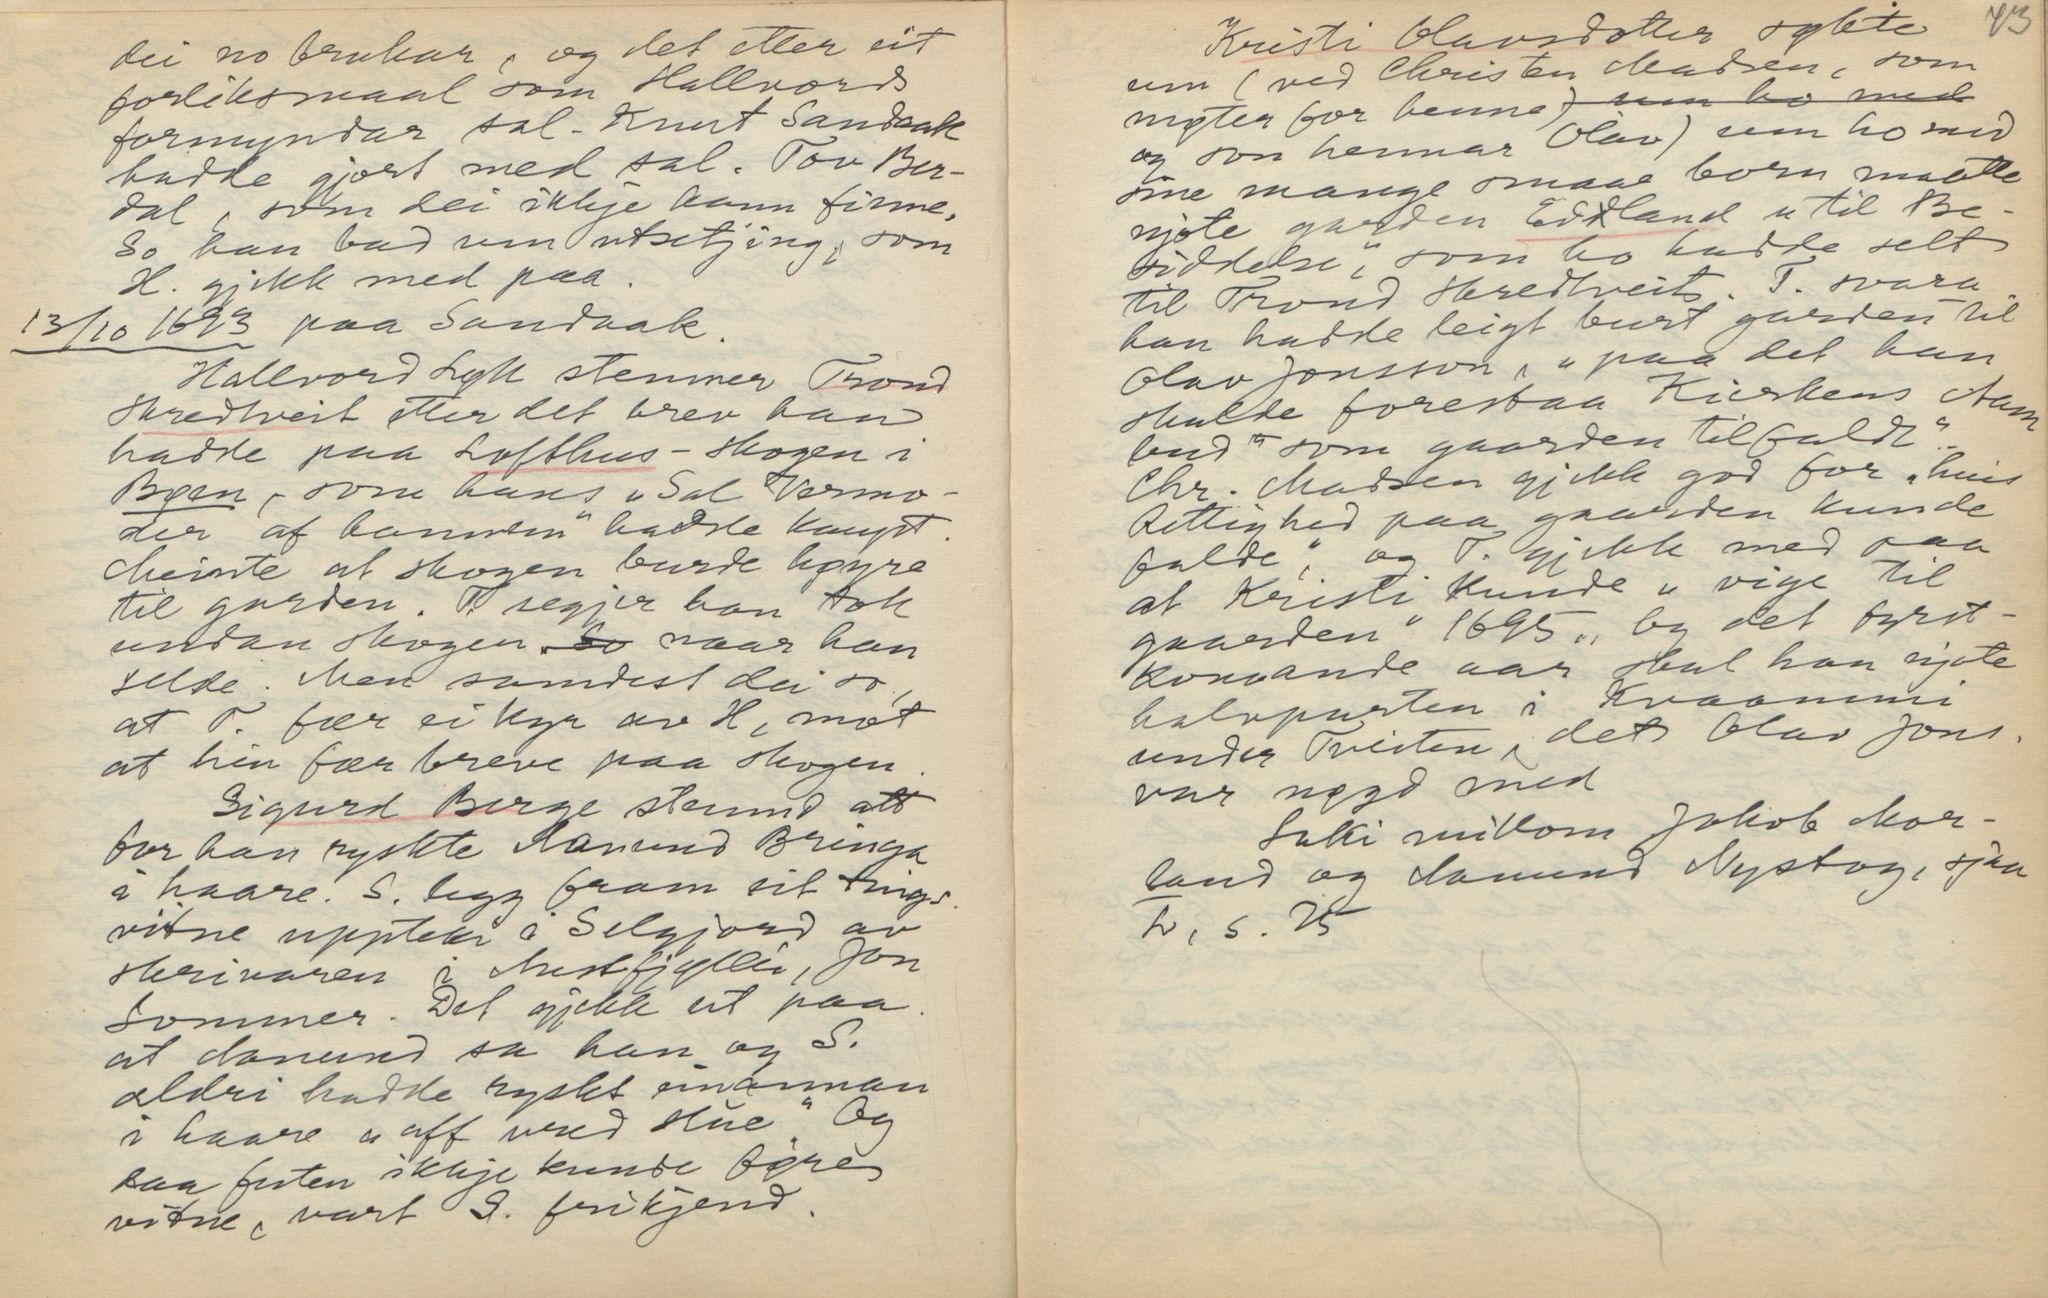 dei no brukar, og det etter eit
forliksmaal som Hallvords
formyndar sal. Knut Sandaak
hadde gjort med sal. Tov Ber-
dal, som dei ikkje kann finne.
So han bad um utsetjing, som
H. gjekk med paa.
13/10 1693 paa Sandaak.
Hallvord Lyk stemner Trond
Skredtveit etter det brev han
hadde paa Lofthus-skogen i
Bøen, som hans "Sal Vermo-
der af hannem" hadde kaupt.
Meinte at skogen burde høyre
til garden. T. segjer han tok
undan skogen. So naar han
selde. Men samdest dei so,
at T. fær ei kyr av H, mot
at hin fær breve paa skogen.
Sigurd Berge stemnd att
for han ryskte Aamund Bringa
i haare. S. legg fram eit tings-
vitne uppteke i Selgjord av
skrivaren i Austfjylli, Jon
Sommer. Det gjekk ut paa
at Aamund sa han og S.
aldri hadde ryskt einannan
i haare "aff vred Hue". Og
daa futen ikkje kunde føre
vitne, vart S. frikjend.
73
Kristi Olavsdotter søkte
um (ved Christen Madsen, som
møter for henne) um ho med
og son hennar Olav) um ho med
sine mange smaae born maatte
njote garden Eddland "til Be-
siddelse", som ho hadde selt
til Trond Skredtveit. T. svara
han hadde leigt burt garden til
Olav Jonsson, "paa det han
skulde forestaa Kierkens Aam
bud" som gaarden tilfaldt".
Chr. Madsen gjekk god for "huis
Rettighed paa gaarden kunde
falde", og T. gjekk med paa
at Kristi kunde "vige til
gaarden" 1695", og det fyrst-
komande aar skal han njote
halvparten i Kvaammi
under Tveiten, det Olav Jons.
var nøgd med
Saki millom Jakob Mor-
land og Aamund Nystog, sjaa
L, s. 75